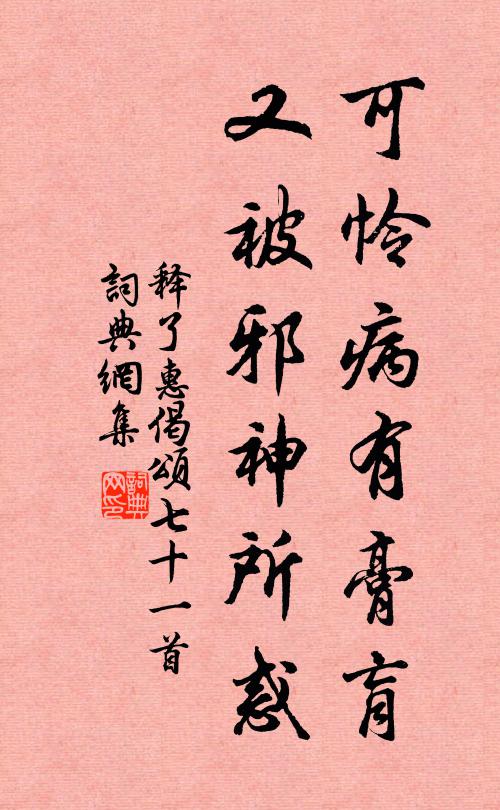 可怜病有膏肓
又被邪神所惑
释了惠偈颂七十一首
詞典網集
詞典网印